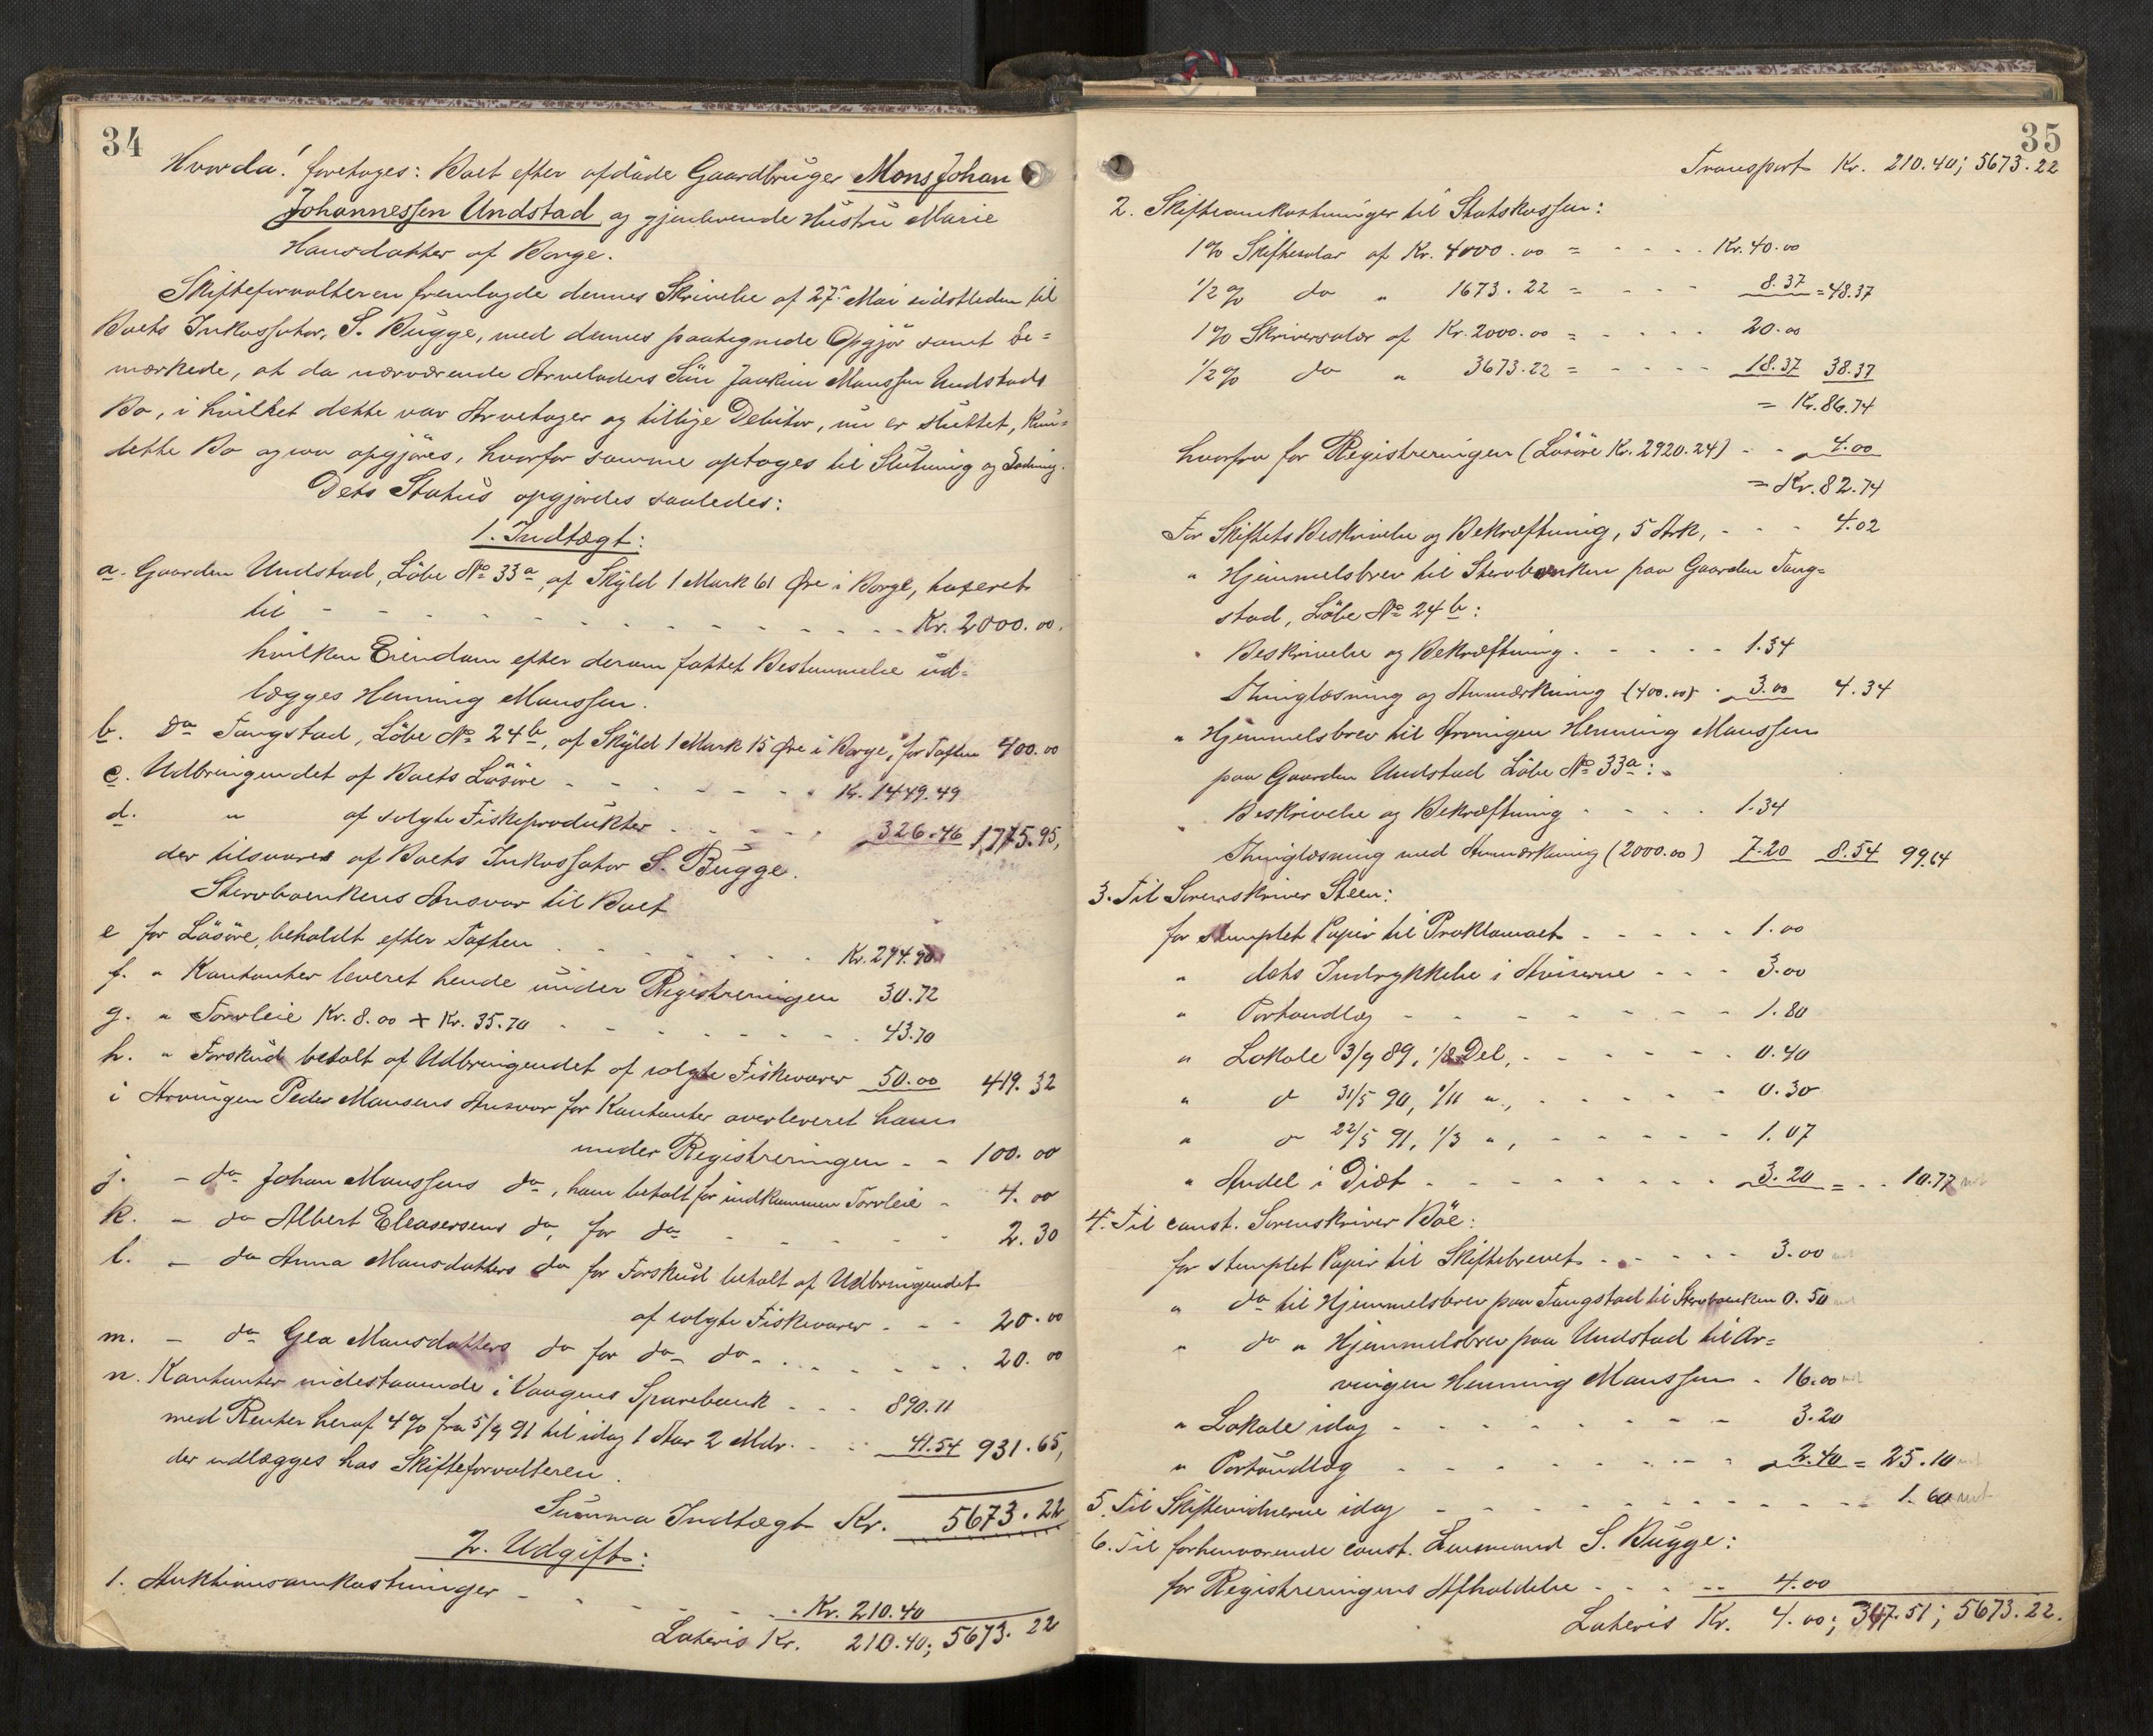 34
Hvorda! foretages: Boet efter afdøde Gaardbruger Mons Johan
Johannessen Undstad og gjenlevende Hustru Marie
Hansdatter af Borge.
Skifteforvalteren fremlagde dennes Skrivelse af 27de Mai sidstleden til
Boets Inkassator, S. Bugge, med dennes paategnede Opgjør samt be=
mærkede, at da nærværende Arveladers Søn Joakim Monssen Undstads
Bo, i hvilket dette var Arvetager og tillige Debitor, nu er sluttet, kun=
dette Bo ogsaa opgjøres, hvorfor samme optages til Slutning og Lodning.
Dets Status opgjordes saaledes:
1. Indtægt:
a. Gaarden Undstad, Løbe No 33a, af Skyld 1 Mark 61 Øre i Borge, taxeret
til - - - Kr. 2000.00.
hvilken Eiendom efter derom fattet Bestemmelse ud=
lægges Henning Monssen.
b. do Tangstad, Løbe No 24b, af Skyld 1 Mark 15 Øre i Borge, for Taxten 400.00
c. Udbringendet af Boets Løsøre - - - Kr. 1449.49
d. " af solgte Fiskeprodukter - - - 326.46 1,775.95,
der tilsvares af Boets Inkassator S. Bugge.
Stervboenkens Ansvar til Boet
e for Løsøre, beholdt efter Taxten - - - Kr. 294.90
f. " Kontanter leveret hende under Registreringen 30.72
g. " Torvleie Kr. 8.00 + Kr. 35.70 - - - 43.70
h. " Forskud betalt af Udbringendet af solgte Fiskevarer 50.00 419.32
i Arvingen Peder Monsens Ansvar for Kontanter overleveret ham
under Registreringen - - 100.00
j. - do Johan Monssens do, ham betalt for indkommen Torvleie - 4.00
k. - do Albert Eleasersens do, for do - - - 2.30
l. - do Anna Monsdatters do for Forskud betalt af Udbringendet
af solgte Fiskevarer - - - 20.00
m. - do Gea Monsdatters do for do - do - - - 20.00
n. Kontanter indestaaende i Vaagens Sparebank - - - 890.11
med Renter heraf 4% fra 5/9 91 til idag 1 Aar 2 Mdr. - - 41.54 931.65,
der udlægges hos Skifteforvalteren.
Summa Indtægt Kr. 5673.22
2. Udgift:
1. Auktionsomkostninger - - - Kr. 210.40
Lateris Kr. 210.40; 5673.22
35
Transport Kr. 210.40; 5673.22
2. Skifteomkostninger til Statskassen:
1% Skiftesalar af Kr. 4000.00 = - - - Kr. 40.00
1/2% do " 1673.22 = - - - 8.37 = 48.37
1% Skriversalær af Kr. 2000.00 = - - - 20.00
1/2% do " 3673.22 = - - - 18.37 38.37
= Kr. 86.74
hvorfra for Registreringen (Løsøre Kr. 2920.24) - - 4.00
= Kr. 82.74
For Skiftets Beskrivelse og Bekræftning, 5 Ark, - - - 4.02
" Hjemmelsbrev til Stervboenken paa Gaarden Tang=
stad, Løbe No 24b:
Beskrivelse og Bekræftning - - - 1.34
Thinglæsning og Anmærkning (400.00) - 3.00 4.34
" Hjemmelsbrev til Arvingen Henning Monssen
paa Gaarden Undstad Løbe No 33a:
Beskrivelse og Bekræftning - - - 1.34
Thinglæsning med Anmærkning (2000.00) 7.20 8.54 99.64
3. Til Sorenskriver Steen:
for stemplet Papir til Proklamaet - - - 1.00
" dets Indrykkelse i Aviserne - - - 3.00
" Portoudlæg - - - 1.80
" Lokale 3/9 89, 1/8 Del, - - - 0.40
" do 31/5 90, 1/11 ", - - - 0.30
" do 22/5 91, 1/3 ", - - - 1.07
" Andel i Diæt - - - 3.20 = - - 10.77
4. Til const. Sorenskriver Bøe:
for stemplet Papir til Skiftebrevet - - - 3.00
" do til Hjemmelsbrev paa Tangstad til Stervboenken 0.50
" do " Hjemmelsbrev paa Undstad til Ar=
vingen Henning Monssen - 16.00
" Lokale idag - - - 3.20
" Portoudlæg - - - 2.40 = 25.10
5. Til Skiftevidnerne idag - - - 1.60
6. Til forhenværende const. Lensmand S. Bugge:
for Registreringens Afholdelse - - - 4.00
Lateris Kr. 4.00; 347.51; 5673.22.